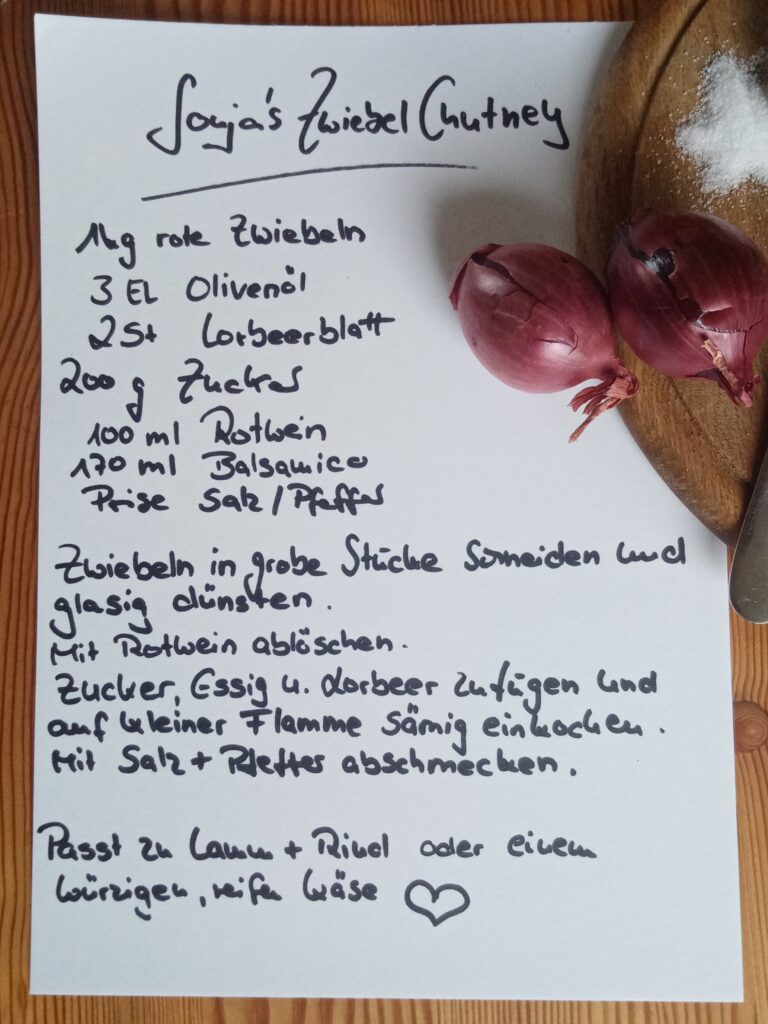 Sonja's Zwiebel Chutney
1kg rote Zwiebeln
3 EL Olivenöl
2 St Lorbeerblatt
200 g Zucker
100 ml Rotwein
170 ml Balsamico
Prise Salz/Pfeffer
Zwiebeln in grobe Stücke schneiden und
glasig dünsten.
Mit Rotwein ablöschen.
Zucker, Essig u. Lorbeer zufügen und
auf kleiner Flamme sämig einkochen.
Mit Salz + Pfeffer abschmecken.
Passt zu Lamm + Rind oder einem
würzigen, reifen Käse